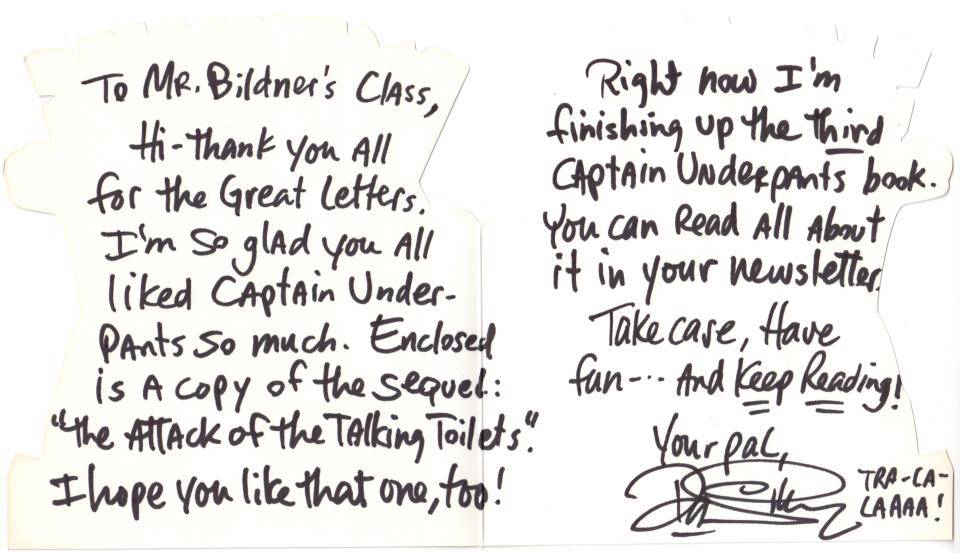 To Mr. Bildner's Class,
Hi-thank you All
for the Great Letters.
I'm so glad you All
liked Captain Under-
Pants so much. Enclosed
is A copy of the sequel:
"the Attack of the Talking Toilets".
I hope you like that one, too!
Right now I'm
finishing up the third
Captain Underpants book.
You can Read All About
it in your newsletter.
Take care, Have
fun--·· And Keep Reading!
Your pal,
TRA-LA-
LAAAA!